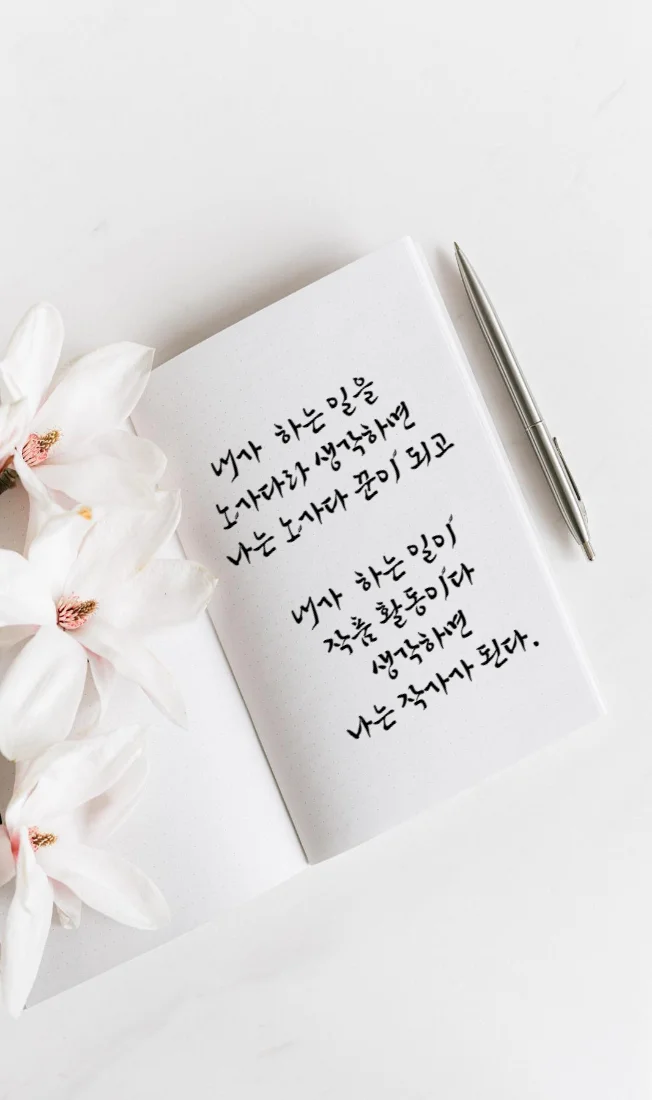 내가 하는 일을
노가다라 생각하면
나는 노가다 꾼이 되고
내가 하는 일이
작품 활동이다
생각하면
나는 작가가 된다.